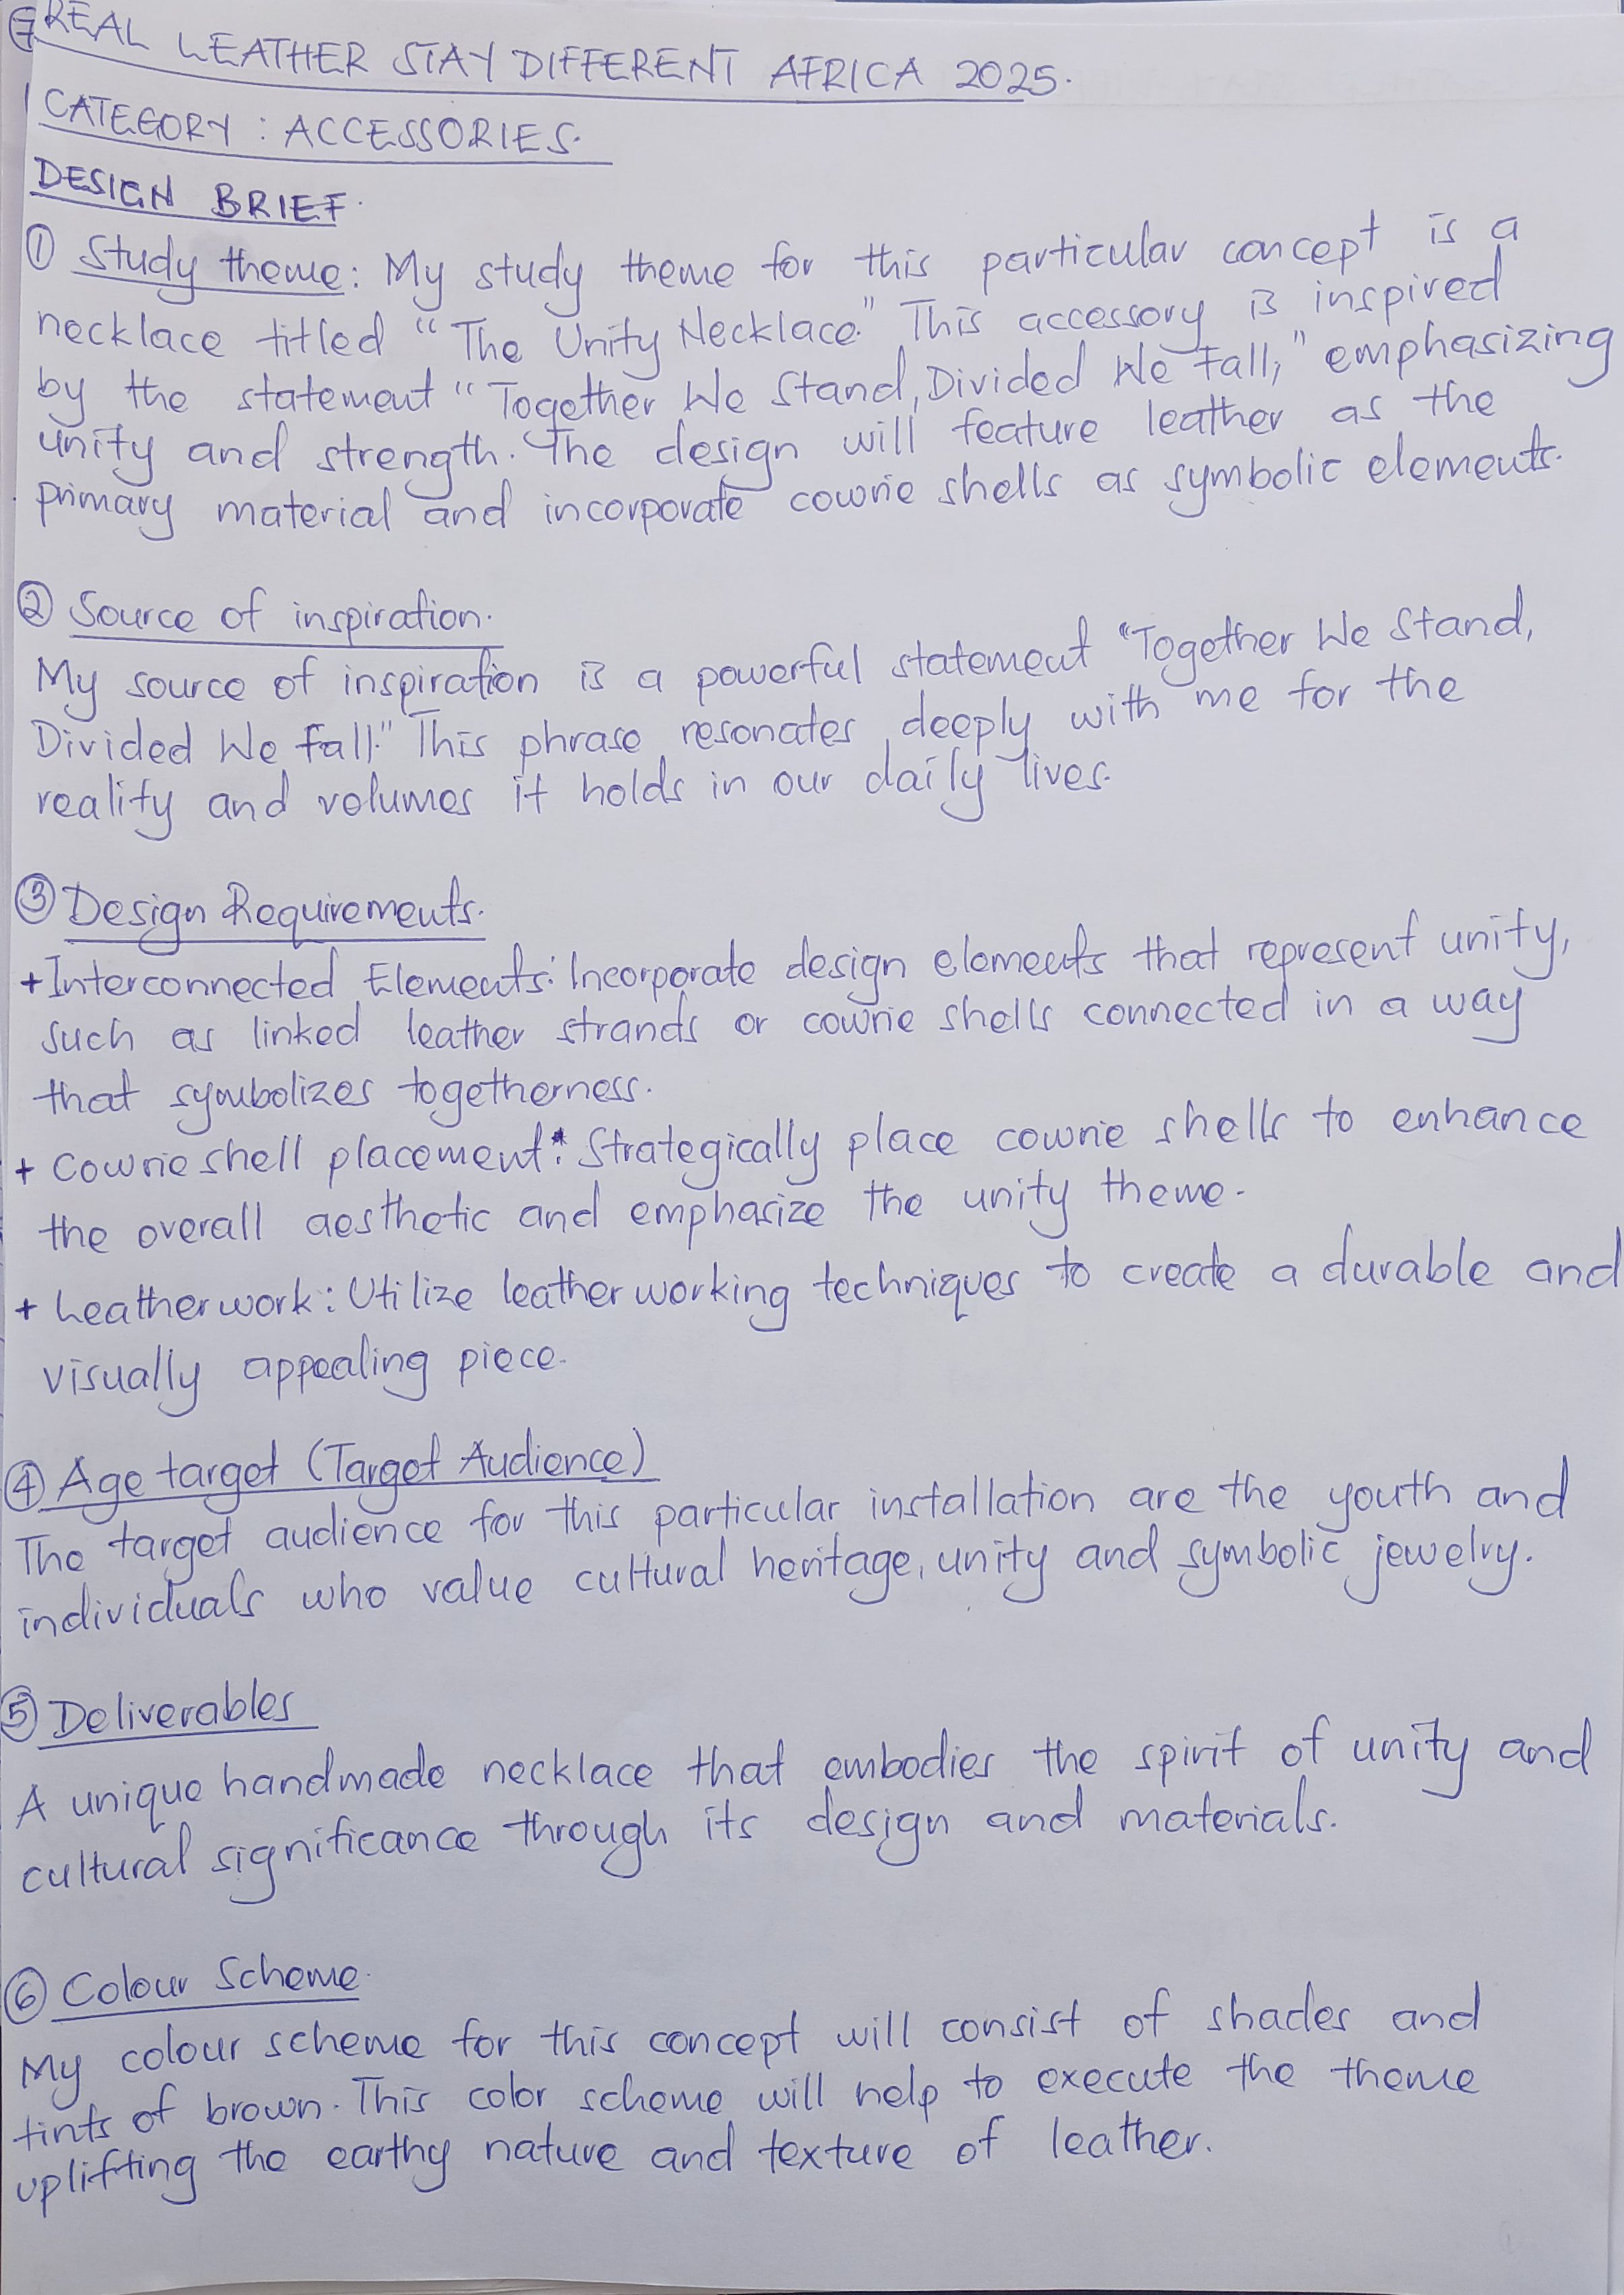 REAL LEATHER STAY DIFFERENT AFRICA 2025.
CATEGORY : ACCESSORIES.
DESIGN BRIEF.
① Study theme: My study theme for this particular concept is a
necklace titled "The Unity Necklace." This accessory is inspired
by the statement "Together We Stand, Divided We Fall," emphasizing
unity and strength. The design will feature leather as the
primary material and incorporate cowrie shells as symbolic elements.
② Source of inspiration.
My source of inspiration is a powerful statement "Together We Stand,
Divided We fall." This phrase resonates deeply with me for the
reality and volumes it holds in our daily lives.
③ Design Requirements.
+ Interconnected Elements: Incorporate design elements that represent unity,
such as linked leather strands or cowrie shells connected in a way
that symbolizes togetherness.
+ Cowrie shell placement: Strategically place cowrie shells to enhance
the overall aesthetic and emphasize the unity theme.
+ Leatherwork: Utilize leatherworking techniques to create a durable and
visually appealing piece.
④ Age target (Target Audience)
The target audience for this particular installation are the youth and
individuals who value cultural heritage, unity and symbolic jewelry.
⑤ Deliverables
A unique handmade necklace that embodies the spirit of unity and
cultural significance through its design and materials.
⑥ Colour Scheme.
My colour scheme for this concept will consist of shades and
tints of brown. This color scheme will help to execute the theme
uplifting the earthy nature and texture of leather.